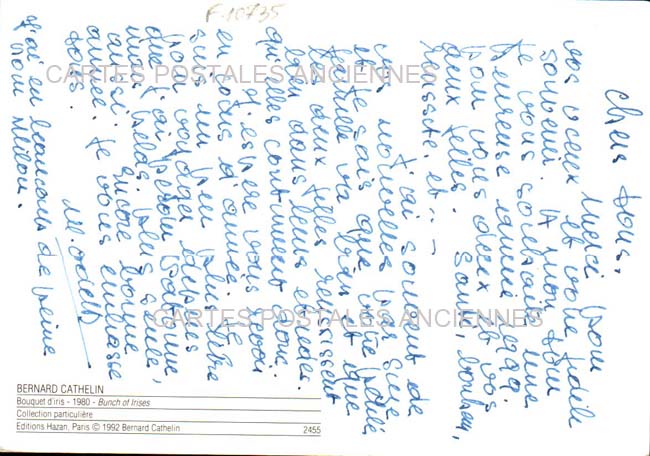 F-10735
Chers tous,
Merci pour
vos voeux et votre fidèle
souvenir. A mon tour
je vous souhaite une
heureuse année
pour vous deux et vos
deux filles. Santé, bonheur,
réussite, et - -
J'ai souvent de
vos nouvelles par
et je sais que votre
famille va bien et que
les deux filles réussissent
bien dans leurs études.
qu'elles continuent donc.
J'espère vous voir
en cours d'année. Je
suis un peu plus libre
pour voyager depuis
que j'ai perdu
mais hélas plus seule,
aussi. Encore bonne
année. Je vous embrasse
tous.
M. Odette
J'ai eu beaucoup de peine
pour
CARTES POSTALES ANCIENNES
CARTES POSTALES ANCIENNES
BERNARD CATHELIN
Bouquet d'iris - 1980 - Bunch of Irises
Collection particulière
Editions Hazan, Paris © 1992 Bernard Cathelin 2455